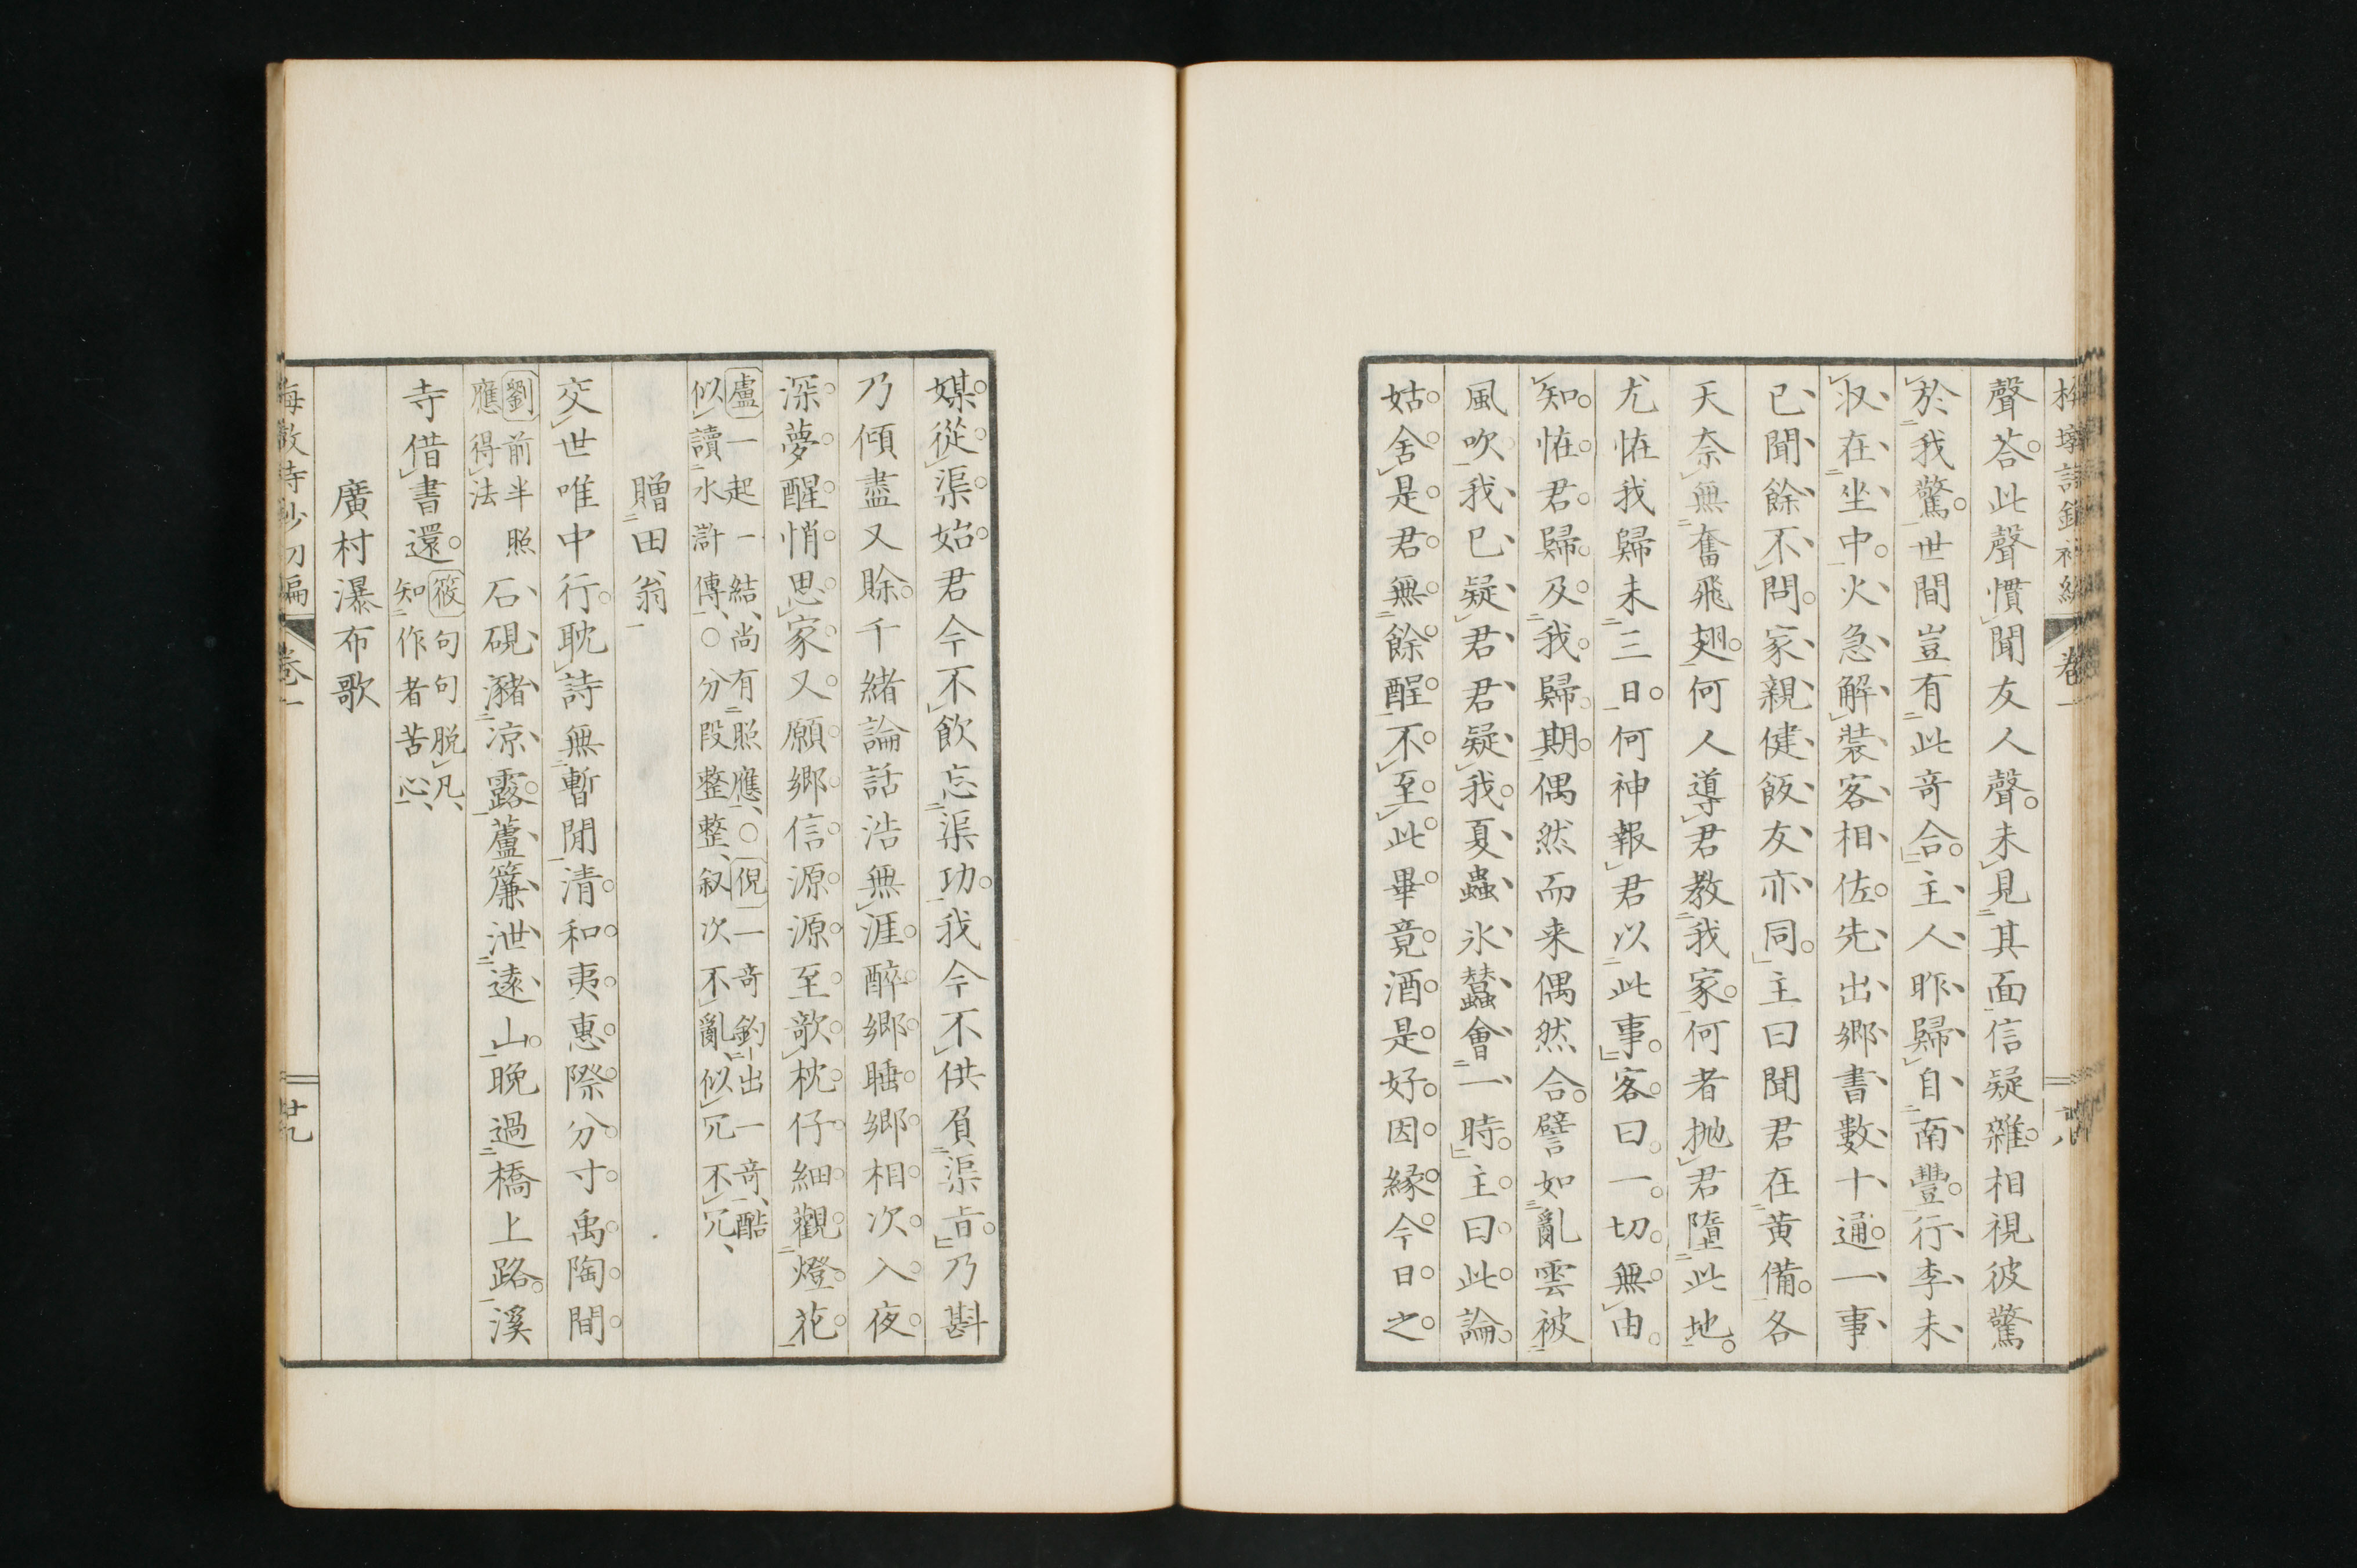 聲荅此聲慣聞友人聲未見其面信疑雜相視彼驚
於我驚世間豈有此奇合主人昨歸自南豐行李未
収在坐中火急解裝客相佐先出鄉書數十通一事
已聞餘不問家親健飯友亦同主曰聞君在黄備各
天奈無奮飛翅何人導君教我家何者抛君墮此地
尤恠我歸未三日何神報君以此事客曰一切無由
知恠君歸及我歸期偶然而来偶然合譬如亂雲被
風吹我已疑君君疑我夏蟲氷蠶會一時主曰此論
姑舍是君無餘酲不至此畢竟酒是好因縁今日之
媒從渠始君今不飲忘渠功我今不供負渠㫖乃斟
乃傾盡又賖千緒論話浩無涯醉鄉睡鄉相次入夜
深夢醒悄思家又願鄉信源源至欹枕仔細觀燈花
盧一起一結尚有照應○倪一奇釣出一奇酷
似讀水滸傳○分段整整叙次不亂似冗不冗
贈田翁
交世唯中行耽詩無暫閒清和夷惠際分寸禹陶間
劉前半照
應得法
石硯瀦凉露蘆簾泄遠山晚過橋上路溪
寺借書還
筱句句脱凡
知作者苦心
廣村瀑布歌
卷一